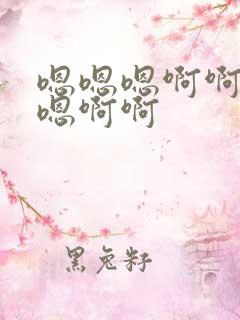 嗯嗯嗯啊啊
嗯啊啊
黑兔籽